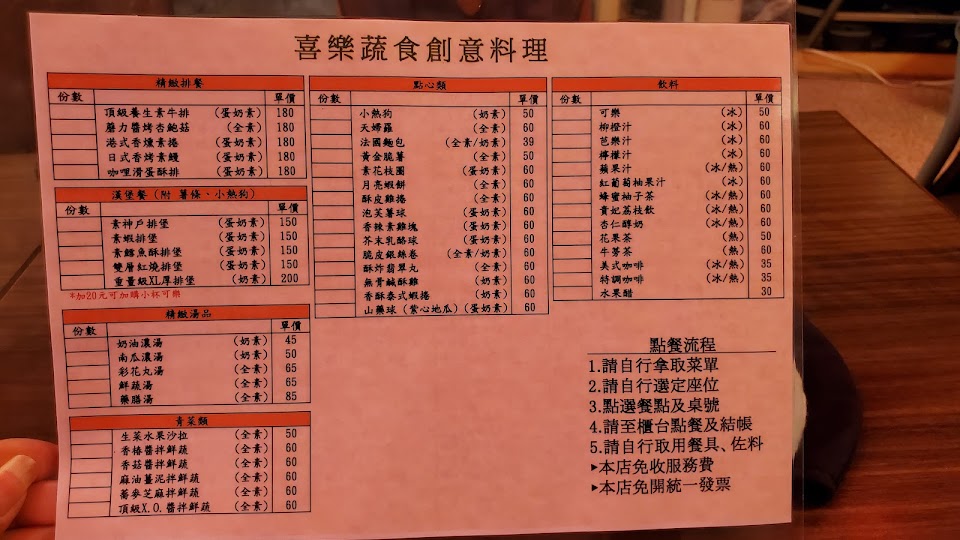 喜樂蔬食創意料理
精緻排餐
份數 單價
頂級養生素牛排 (蛋奶素) 180
磨力醬烤杏鮑菇 (全素) 180
港式香燻素捲 (蛋奶素) 180
日式香烤素鰻 (蛋奶素) 180
咖哩滑蛋酥排 (蛋奶素) 180
漢堡餐 (附 薯條、小熱狗)
份數 單價
素神戶排堡 (蛋奶素) 150
素蝦排堡 (蛋奶素) 150
素鱈魚酥排堡 (蛋奶素) 150
雙層紅燒排堡 (蛋奶素) 150
重量級XL厚排堡 (奶素) 200
*加20元可加購小杯可樂
精緻湯品
份數 單價
奶油濃湯 (奶素) 45
南瓜濃湯 (奶素) 50
彩花丸湯 (全素) 65
鮮蔬湯 (全素) 65
藥膳湯 (全素) 85
青菜類
生菜水果沙拉 (全素) 50
香椿醬拌鮮蔬 (全素) 60
香菇醬拌鮮蔬 (全素) 60
麻油薑泥拌鮮蔬 (全素) 60
蕎麥芝麻拌鮮蔬 (全素) 60
頂級X.O.醬拌鮮蔬 (全素) 60
點心類
份數 單價
小熱狗 (奶素) 50
天婦羅 (全素) 60
法國麵包 (全素/奶素) 39
黃金脆薯 (全素) 50
素花枝圈 (蛋奶素) 60
月亮蝦餅 (全素) 60
酥皮雞捲 (全素) 60
泡芙薯球 (蛋奶素) 60
香辣素雞塊 (蛋奶素) 60
芥末乳酪球 (蛋奶素) 60
脆皮銀絲卷 (全素/奶素) 60
酥炸翡翠丸 (全素) 60
無骨鹹酥雞 (奶素) 60
香酥泰式蝦捲 (奶素) 60
山藥球 (紫心地瓜) (蛋奶素) 60
飲料
份數 單價
可樂 (冰) 50
柳橙汁 (冰) 60
芭樂汁 (冰) 60
檸檬汁 (冰) 60
蘋果汁 (冰/熱) 60
紅葡萄柚果汁 (冰) 60
蜂蜜柚子茶 (冰/熱) 60
貴妃荔枝飲 (冰/熱) 60
杏仁醇奶 (冰/熱) 60
花果茶 (熱) 50
牛蒡茶 (熱) 60
美式咖啡 (冰/熱) 35
特調咖啡 (冰/熱) 35
水果醋 30
點餐流程
1.請自行拿取菜單
2.請自行選定座位
3.點選餐點及桌號
4.請至櫃台點餐及結帳
5.請自行取用餐具、佐料
▶本店免收服務費
▶本店免開統一發票